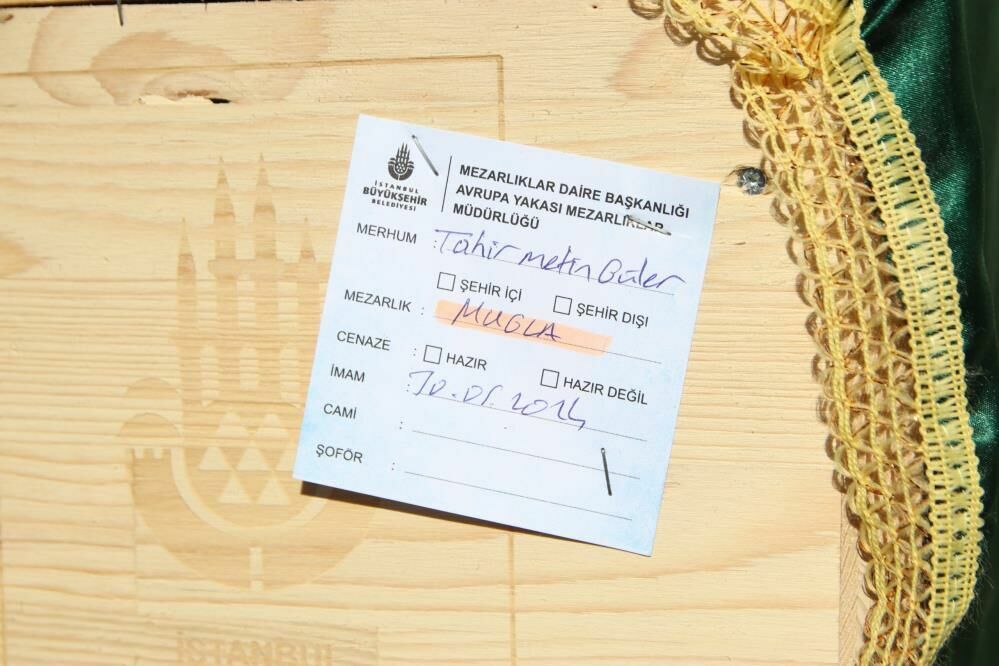 İSTANBUL
BÜYÜKŞEHİR
BELEDİYESİ
MEZARLIKLAR DAİRE BAŞKANLIĞI
AVRUPA YAKASI MEZARLIKLAR
MÜDÜRLÜĞÜ
MERHUM : Tahir metin Güler
ŞEHİR İÇİ ŞEHİR DIŞI
MEZARLIK : MUGLA
CENAZE : HAZIR HAZIR DEĞİL
İMAM :
CAMİ :
ŞOFÖR :
İSTANBUL